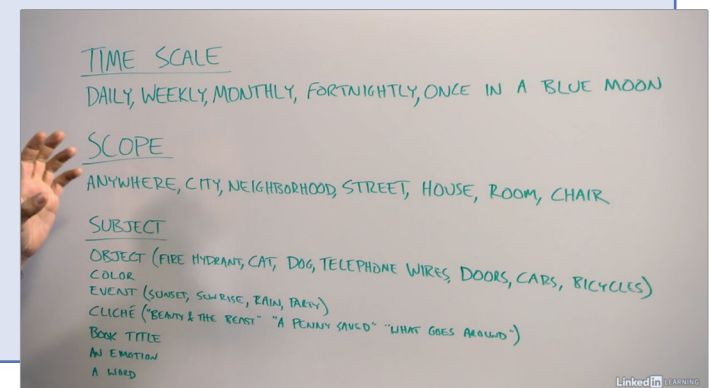 TIME SCALE
DAILY, WEEKLY, MONTHLY, FORTNIGHTLY, ONCE IN A BLUE MOON
SCOPE
ANYWHERE, CITY, NEIGHBORHOOD, STREET, HOUSE, ROOM, CHAIR
SUBJECT
OBJECT (FIRE HYDRANT, CAT, DOG, TELEPHONE WIRES, DOORS, CARS, BICYCLES)
COLOR
EVENT (SUNSET, SUNRISE, RAIN, PARTY)
CLICHÉ ("BEAUTY & THE BEAST" "A PENNY SAVED" "WHAT GOES AROUND")
BOOK TITLE
AN EMOTION
A WORD
LinkedIn LEARNING